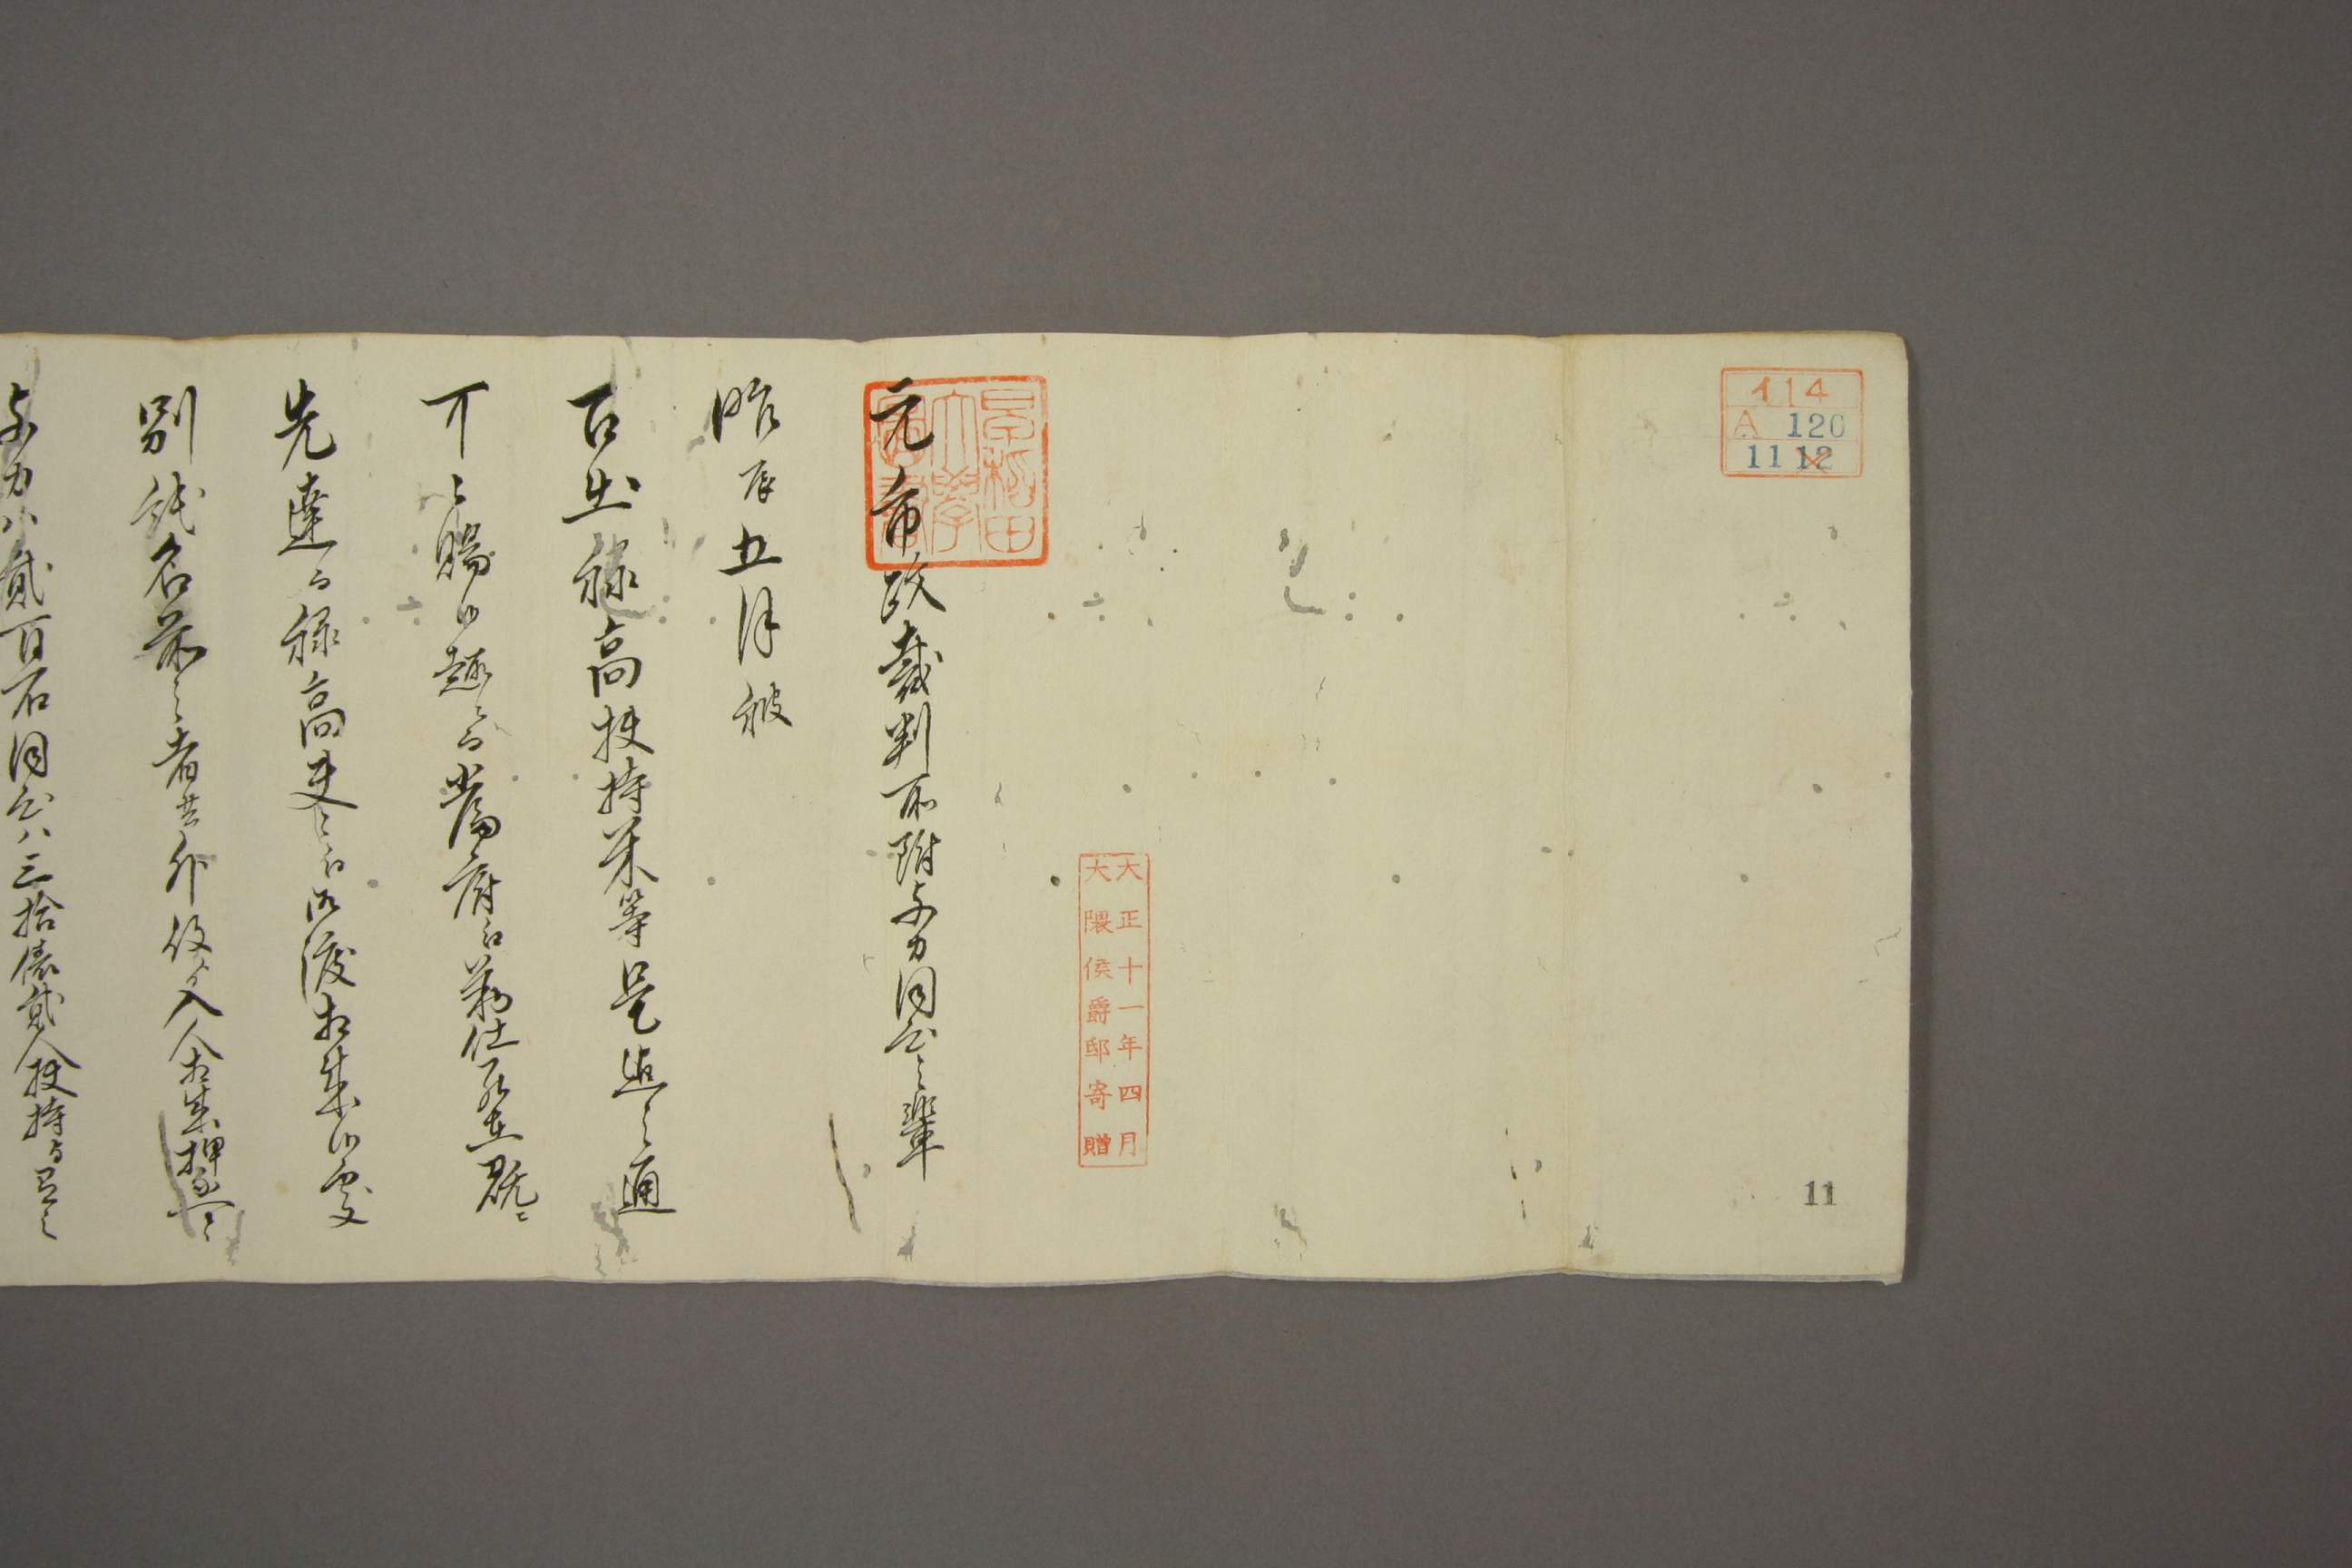 イ14
A 120
11 12
11
大正十一年四月
大隈侯爵邸寄贈
早稲田
大學
圖書
元市政裁判所附与力同心之輩
昨辰五月被
召出禄高扶持米等是迠之通
可被下賜候趣ニ而当府江勤仕罷在既ニ
先達而禄高丈ケ之御渡相成候処
別紙名前之者共外役ゟ入人相成
与力ハ貳百石同心ハ三拾俵貳人扶持ゟ